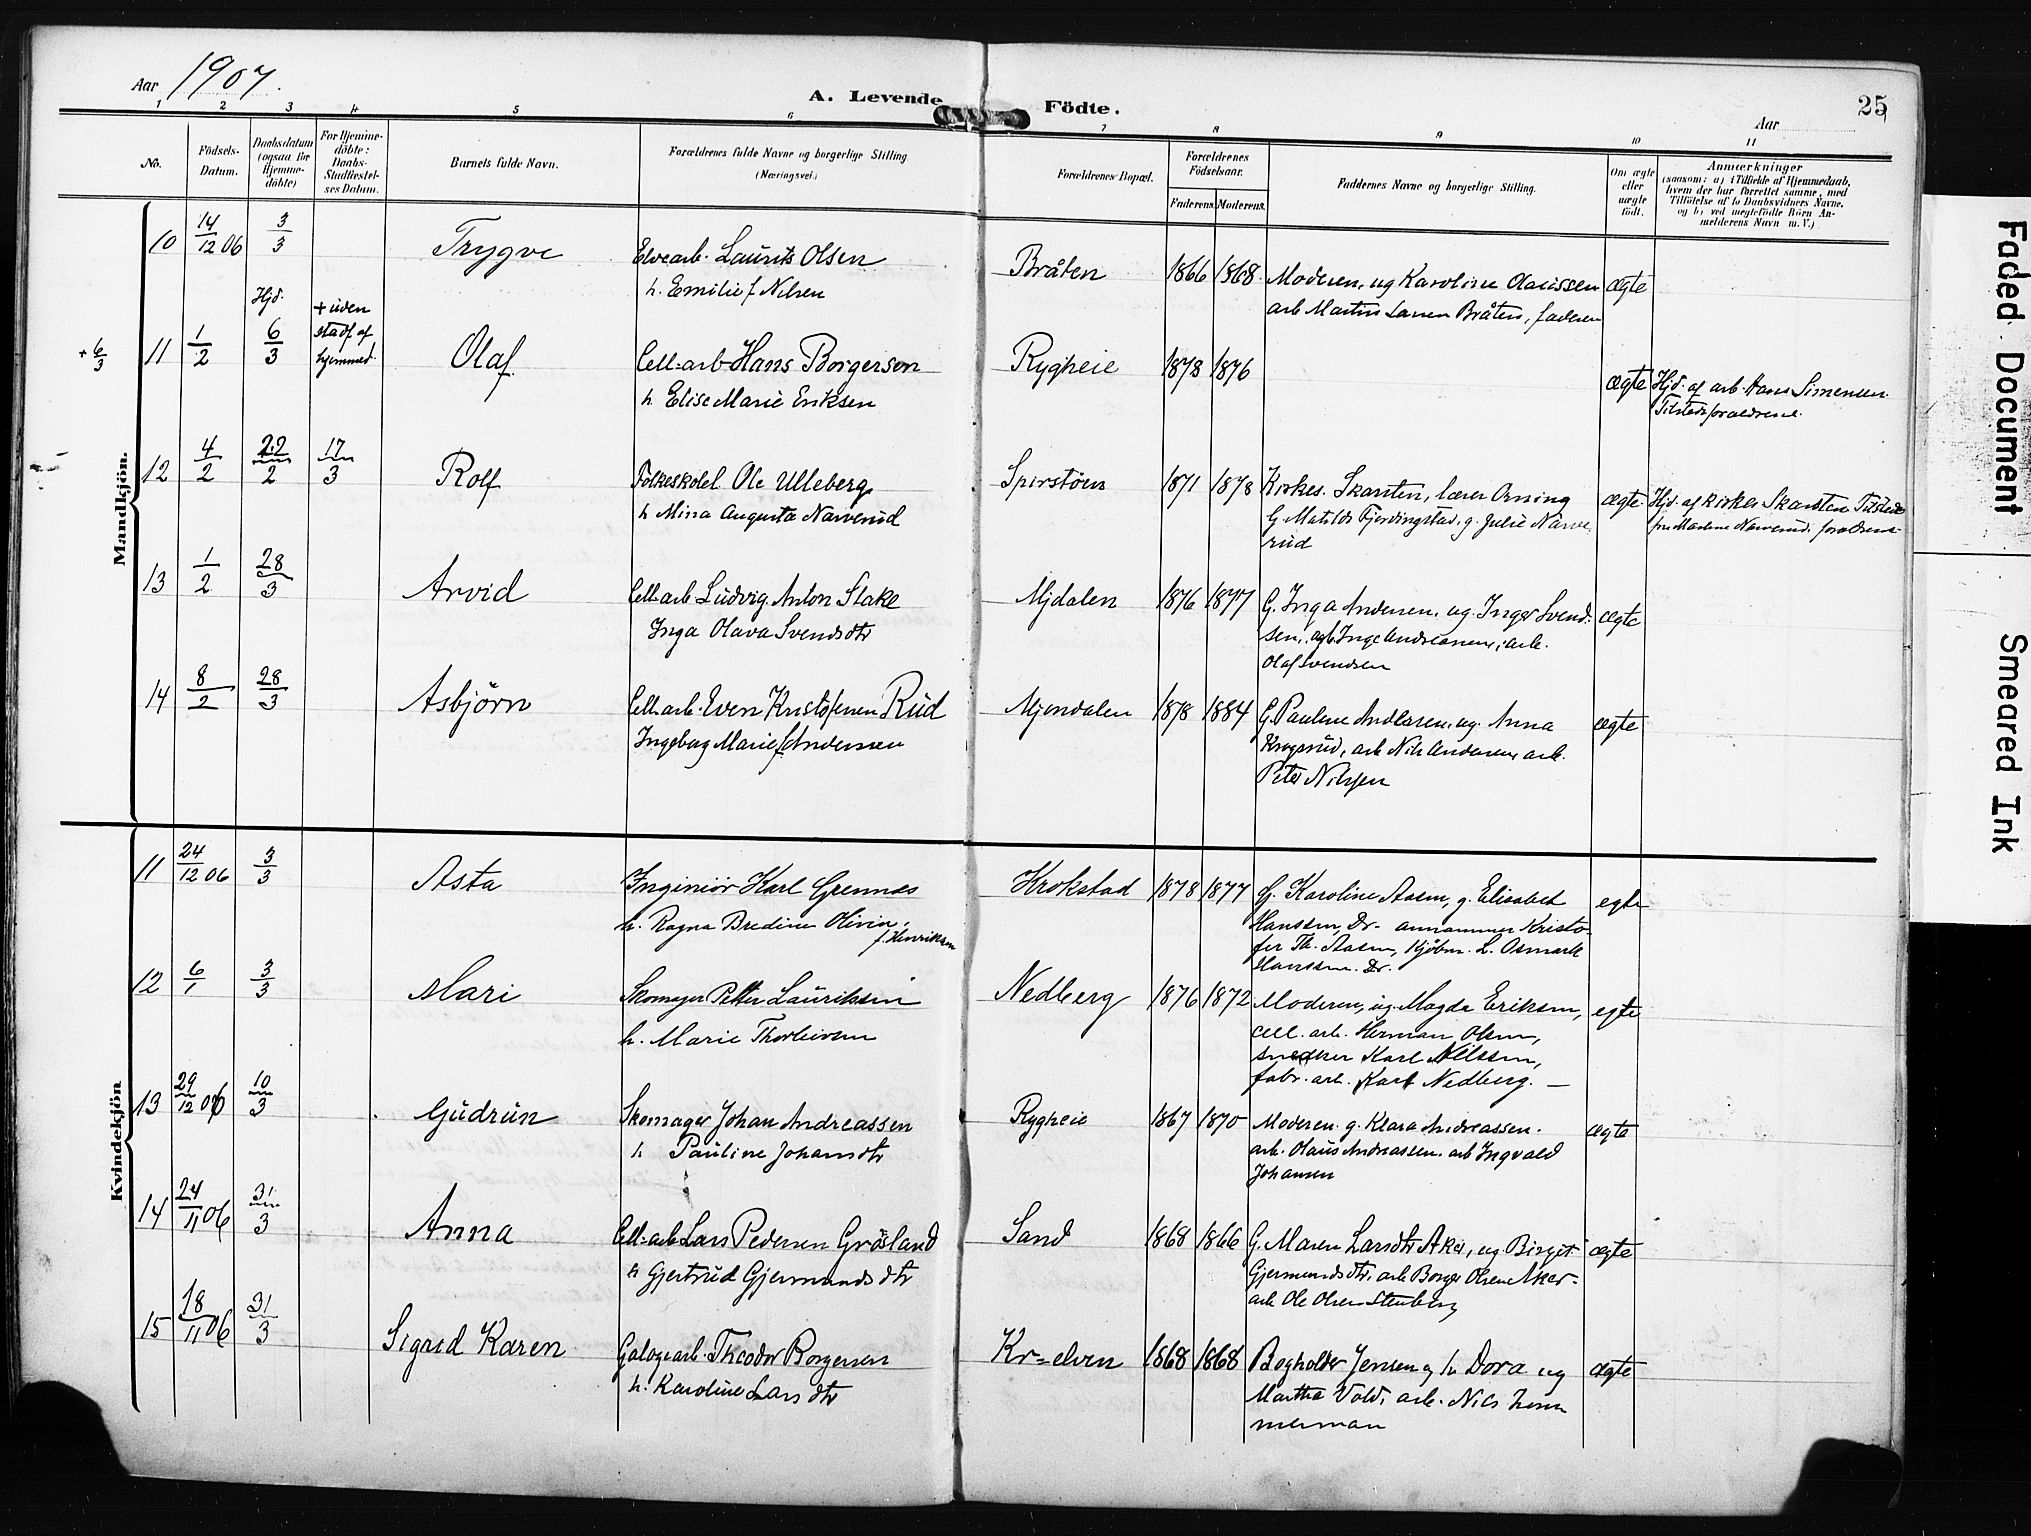 Aar 1907.
A. Levende Födte.
25
Aar
1 2 3 4 5 6 7 8 9 10 11
No.
Födsels-Datum.
Daabsdatum (ogsaa for Hjemme-döbte)
For Hjemme-döbte: Daabs-Stadfæstel-ses Datum.
Barnets fulde Navn.
Forældrenes fulde Navne og borgerlige Stilling (Næringsvei.)
Forældrenes Bopæl.
Forældrenes Födselsaar.
Faderens. Moderens.
Faddernes Navne og borgerlige Stilling.
Om ægte eller uægte födt.
Anmærkninger
(saasom: a) i Tilfælde af Hjemmedaab,
hvem der har forrettet samme, med
Tilföielse af to Daabsvidners Navne.
og b) ved uægtefödte Börn An-
melderens Navn m. V.)
Mandkjön.
10 14/12 06 3/3 Trygve Elvearb. Laurits Olsen Bråten 1866 1868 Moderen, ug Karoline Claussen ægte
h. Emilie f. Nilsen arb Martin Larsen Bråten, faderen
+ 6/3 11 1/2 Hjd. 6/3 + uden stadf. af hjemmed. Olaf Cell-arb Hans Borgersen Rygheie 1878 1876 ægte Hjd. af arb. Hans Simensen
h. Elise Marie Eriksen Tilstede forældrene
12 4/2 22/2 17/3 Rolf Folkeskolel. Ole Ulleberg Spirstöen 1871 1878 Kirkes. Skarsten, lærer Orning ægte Hjd. af kirkes Skarsten Tilstede
h Mina Augusta Narverud G. Matilde Fjerdingstad, g. Julie Narve fru Marlene Narverud. forældrene
rud
13 1/2 28/3 Arvid Cell-arb Ludvig Anton Stake Mjdalen 1876 1877 G. Inga Andersen, ug. Inger Svend- ægte
Inga Olava Svendsdtr sen, arb. Inge Andreassen, arb.
Olaf Svendsen
14 8/2 28/3 Asbjörn Cell-arb. Even Kristofersen Rud Mjöndalen 1878 1884 G. Pauline Andersen, ug. Anna ægte
Ingeborg Marie f Andersen Krogsrud, arb Nils Andersen, arb.
Peter Nilsen
Kvindekjön
11 24/12 06 3/3 Asta Inginiör Karl Grennes Krokstad 1878 1877 G. Karoline Aasen, g. Elisabet egte
h. Ragna Bredine Olivia, f. Henriksen Hanssen, Dr. annammer Kristo-
fer Th. Aasen, Kjöbm. L. Osmark
Hanssen. Dr.
12 6/1 3/3 Mari Skomager Petter Lauriksen Nedberg 1876 1872 Moderen, ug. Magda Eriksen, egte
h. Marie Thorleivsen cell. arb. Herman Olsen,
snedker Karl Nilssen,
fabr. arb. Karl Nedberg. —
13 29/12 06 10/3 Gudrun Skomager Johan Andreassen Rygheie 1867 1870 Moderen. g. Klara Andreassen. ægte
h Pauline Johansdtr arb. Olaus Andreassen. arb Ingvald
Johansen
14 24/11 06 31/3 Anna Cell-arb Lars Pedersen Gråsland Sand 1868 1866 G. Maren Larsdtr Aker, ug. Birgit ægte
h Gjertrud Gjermundsdtr Gjermundsdtr. arb Borger Olsen Aker-
arb Ole Olsen Stenberg
15 18/11 06 31/3 Sigrid Karen Galogearb. Theodor Borgersen Kr=elven 1868 1868 Bogholder Jensen og h. Dora ug ægte
h. Karoline Larsdtr Martha Vold, arb. Nils Zim
merman
Faded Document
Smeared Ink